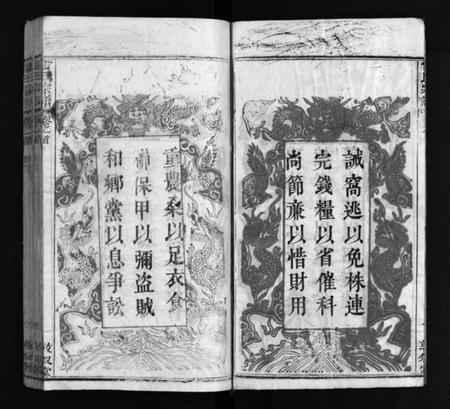 誡窩逃以免株連
完錢糧以省催科
尚節亷以惜財用
重農桑以足衣食
保甲以彌盜賊
和鄉黨以息爭訟